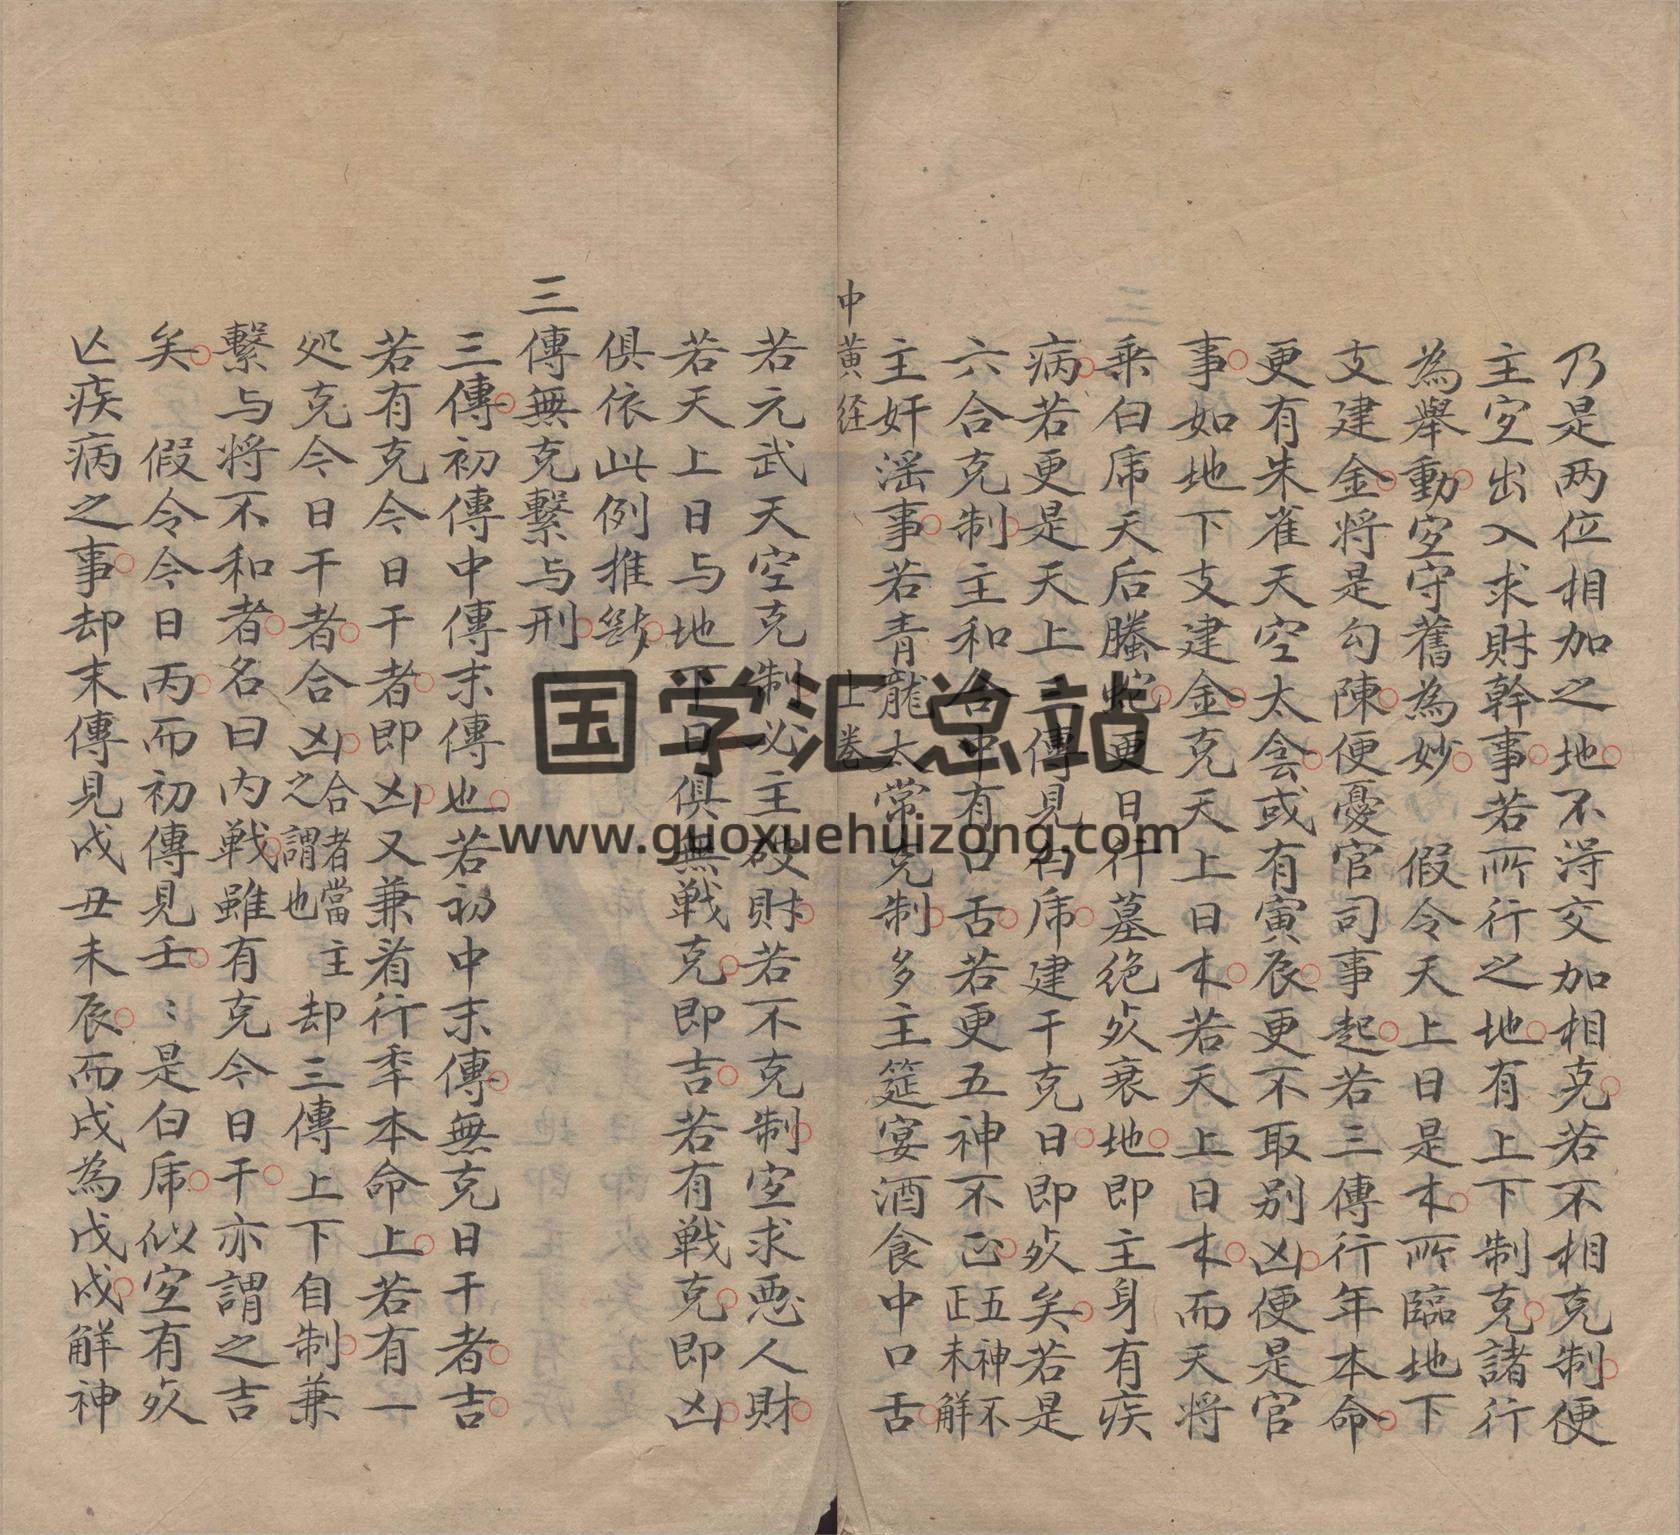 乃是两位相加之地不淂交加相克若不相克制便
主宜出入求財幹事若所行之地有上下制克諸行
為舉動宜守舊為妙　假令天上日是木所臨地下
支建金将是勾陳便憂官司事起若三傳行年本命
更有朱雀天空太侌或有寅辰更不取别凶便是官
事如地下支建金克天上日木若天上日木而天将
乘白乕天后螣蛇更日行墓绝死衰地即主身有疾
病若更是天上三傳見白乕建干克日即死矣若是
六合克制主和合中有口舌若更五神不正五神不正未觧
主奸滛事若青龍太常克制多主筵宴酒食中口舌
中黄经　上卷
若元武天空克制必主破財若不克制宜求悪人財
若天上日与地下日俱無戰克即吉若有戰克即凶
俱依此例推
三傳無克繫与刑
三傳初傳中傳末傳也若初中末傳無克日干者吉
若有克今日干者即凶又兼看行年本命上若有一
処克今日干者合凶合者當之謂也主却三傳上下自制兼
繫与将不和者名曰内戰雖有克今日干亦謂之吉
矣　假令今日丙而初傳見壬〻是白乕似宜有死
亾疾病之事却末傳見戌丑未辰而戌為戊戌觧神
国学汇总站
www.guoxuehuizong.com